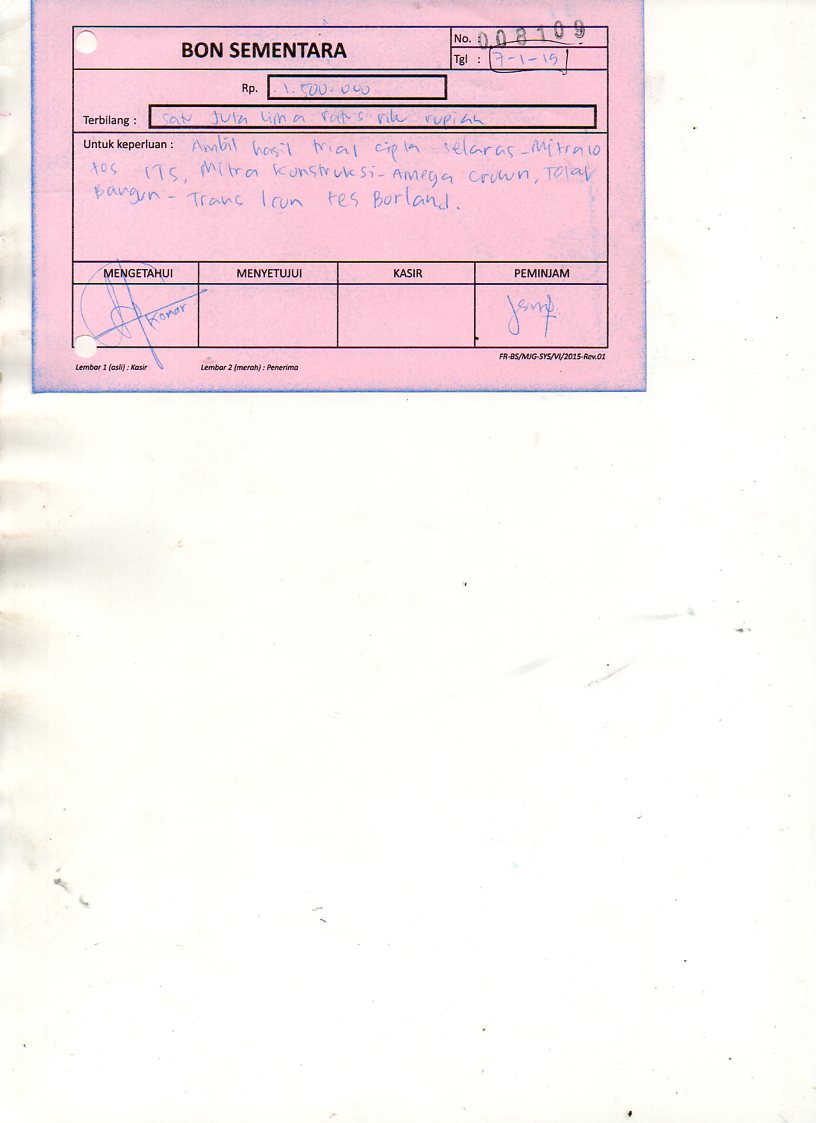 BON SEMENTARA
No. 008109
Tgl : 7-1-19
Rp. 1.500.000
Terbilang : satu Juta lima ratus ribu rupiah
Untuk keperluan : Ambil hasil trial cipta selaras - Mitra10
tes ITS, Mitra Konstruksi - Amega Crown, Total
Bangun - Trans Icon tes Borland.
MENGETAHUI MENYETUJUI KASIR PEMINJAM
Komar
FR-BS/MJG-SYS/VI/2015-Rev.01
Lembar 1 (asli) : Kasir Lembar 2 (merah) : Penerima